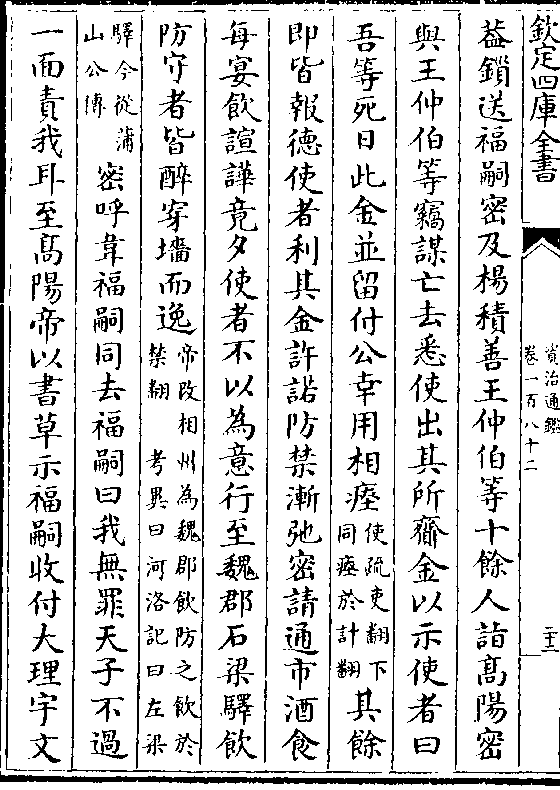 欽定四庫全書
資治通鑑
卷一百八十二
二十三
葢鎖送福嗣密及楊積善王仲伯等十餘人詣髙陽密
與王仲伯等竊謀亡去悉使出其所齎金以示使者曰
吾等死日此金並留付公幸用相瘞使疏吏翻下同瘞於計翻其餘
即皆報德使者利其金許諾防禁漸弛密請通市酒食
每宴飲諠譁竟夕使者不以為意行至魏郡石梁驛飲
防守者皆醉穿墻而逸帝改相州為魏郡飲防之飲於禁翻考異曰河洛記曰左梁
驛今從蒲山公傳密呼韋福嗣同去福嗣曰我無罪天子不過
一面責我耳至髙陽帝以書草示福嗣收付大理宇文